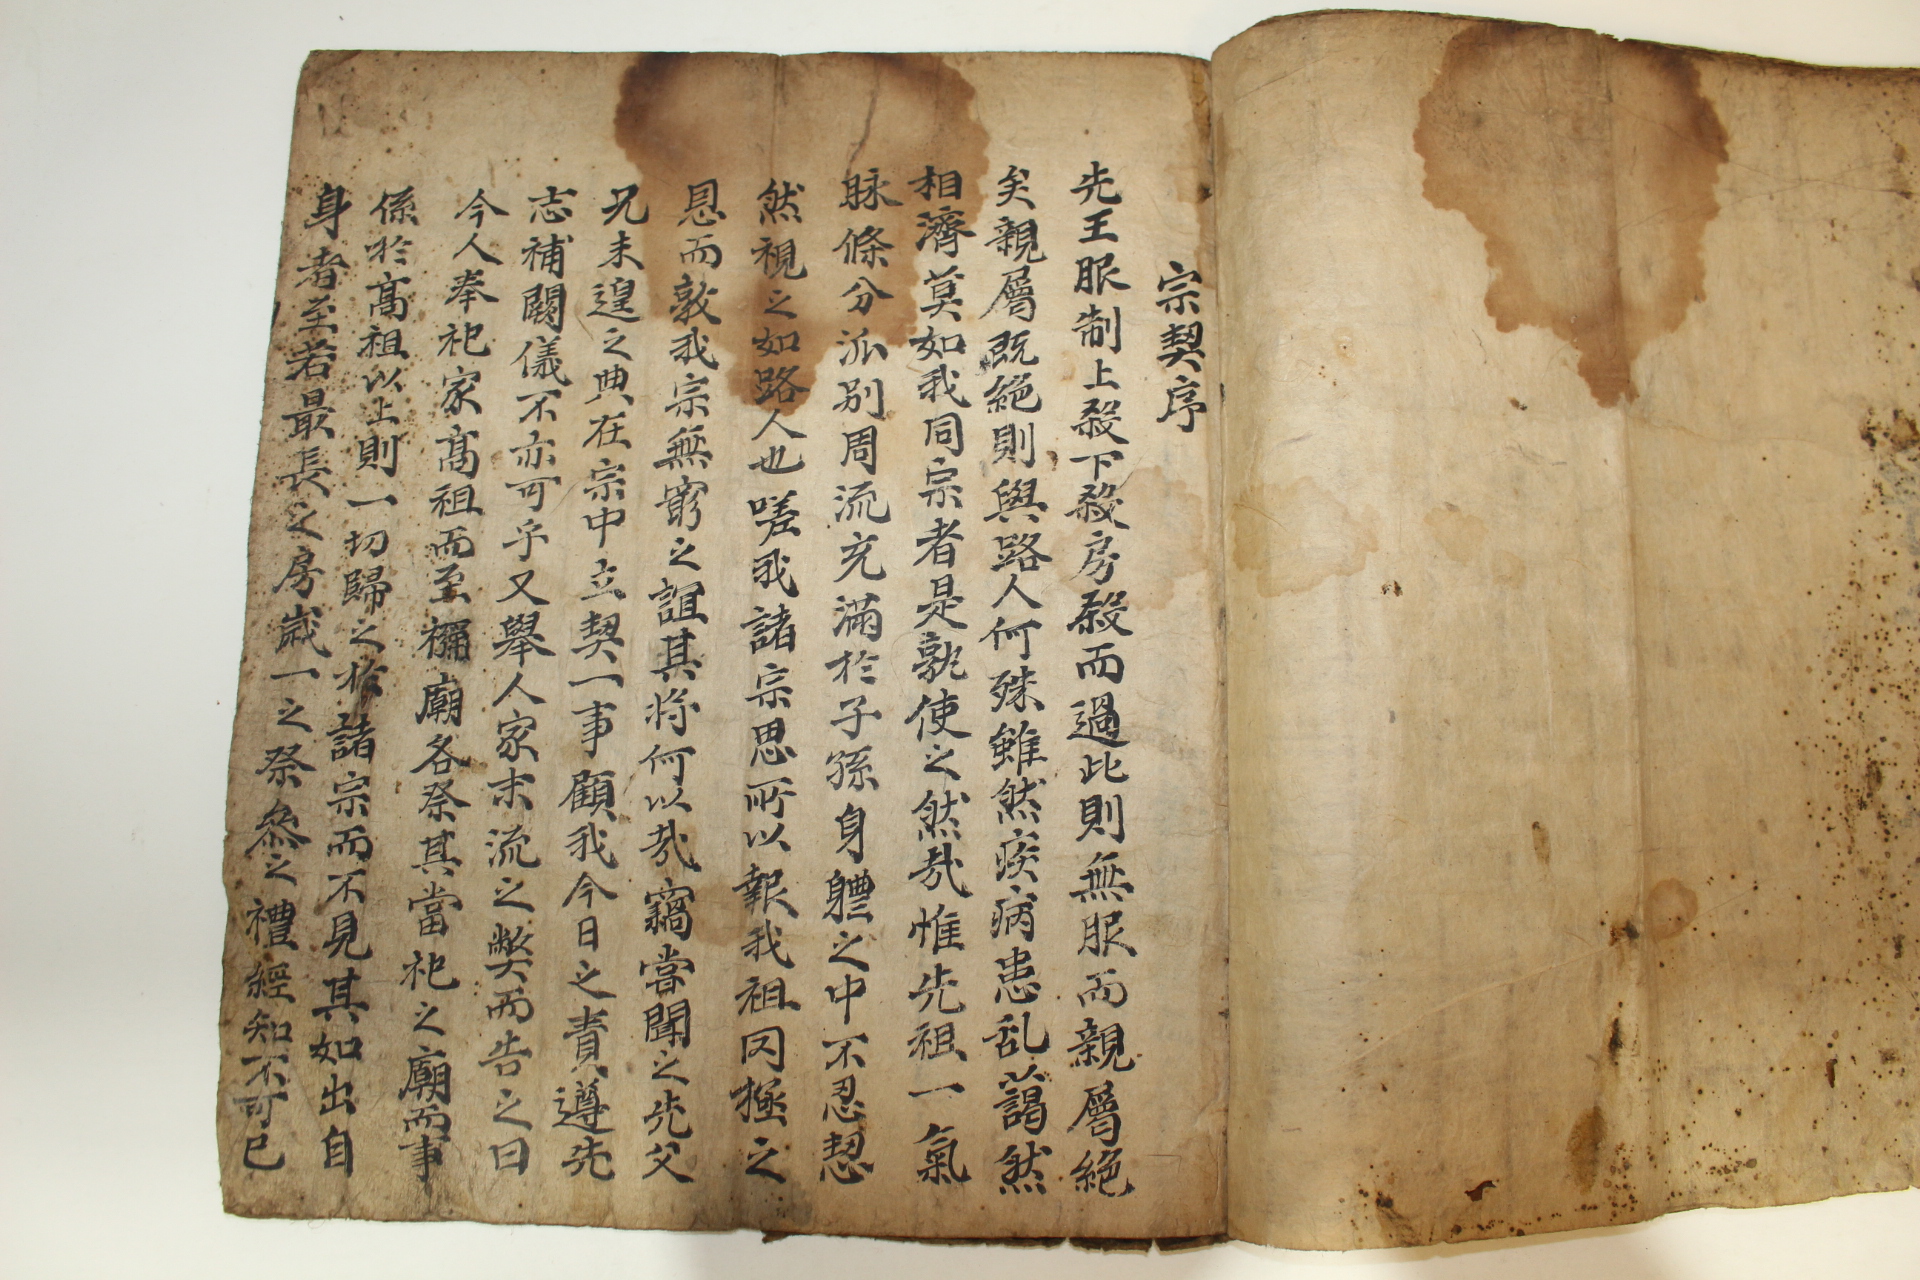 宗契序
先王服制上殺下殺房殺而過此則無服而親屬絕
矣親屬既絕則與路人何殊雖然疾病患乱藹然
相濟莫如我同宗者是孰使之然哉惟先祖一氣
脉條分派別周流充滿於子孫身軆之中不忍恝
然視之如路人也嗟我諸宗思所以報我祖罔極之
恩而敦我宗無窮之誼其將何以哉竊甞聞之先父
兄未遑之典在宗中立契一事顧我今日之責遵先
志補闕儀不亦可乎又舉人家末流之弊而告之曰
今人奉祀家高祖而至禰廟各祭其當祀之廟而事
係於高祖以上則一切歸之於諸宗而不見其如出自
身者至若最長之房歲一之祭叅之禮經知不可已